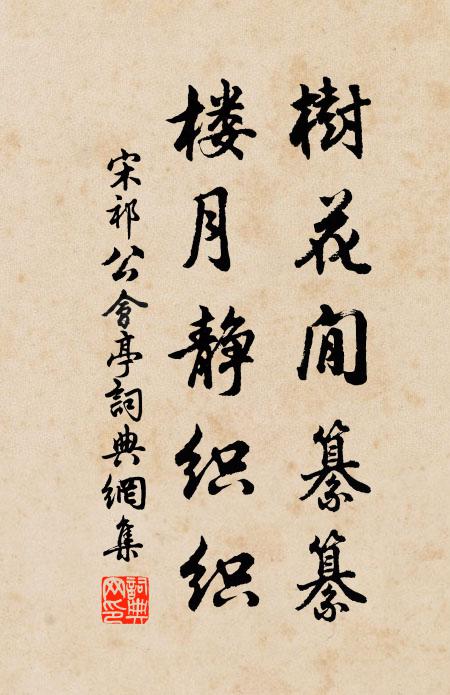 樹花间纂纂
楼月静织织
宋祁公會亭詞典網集
詞典网印